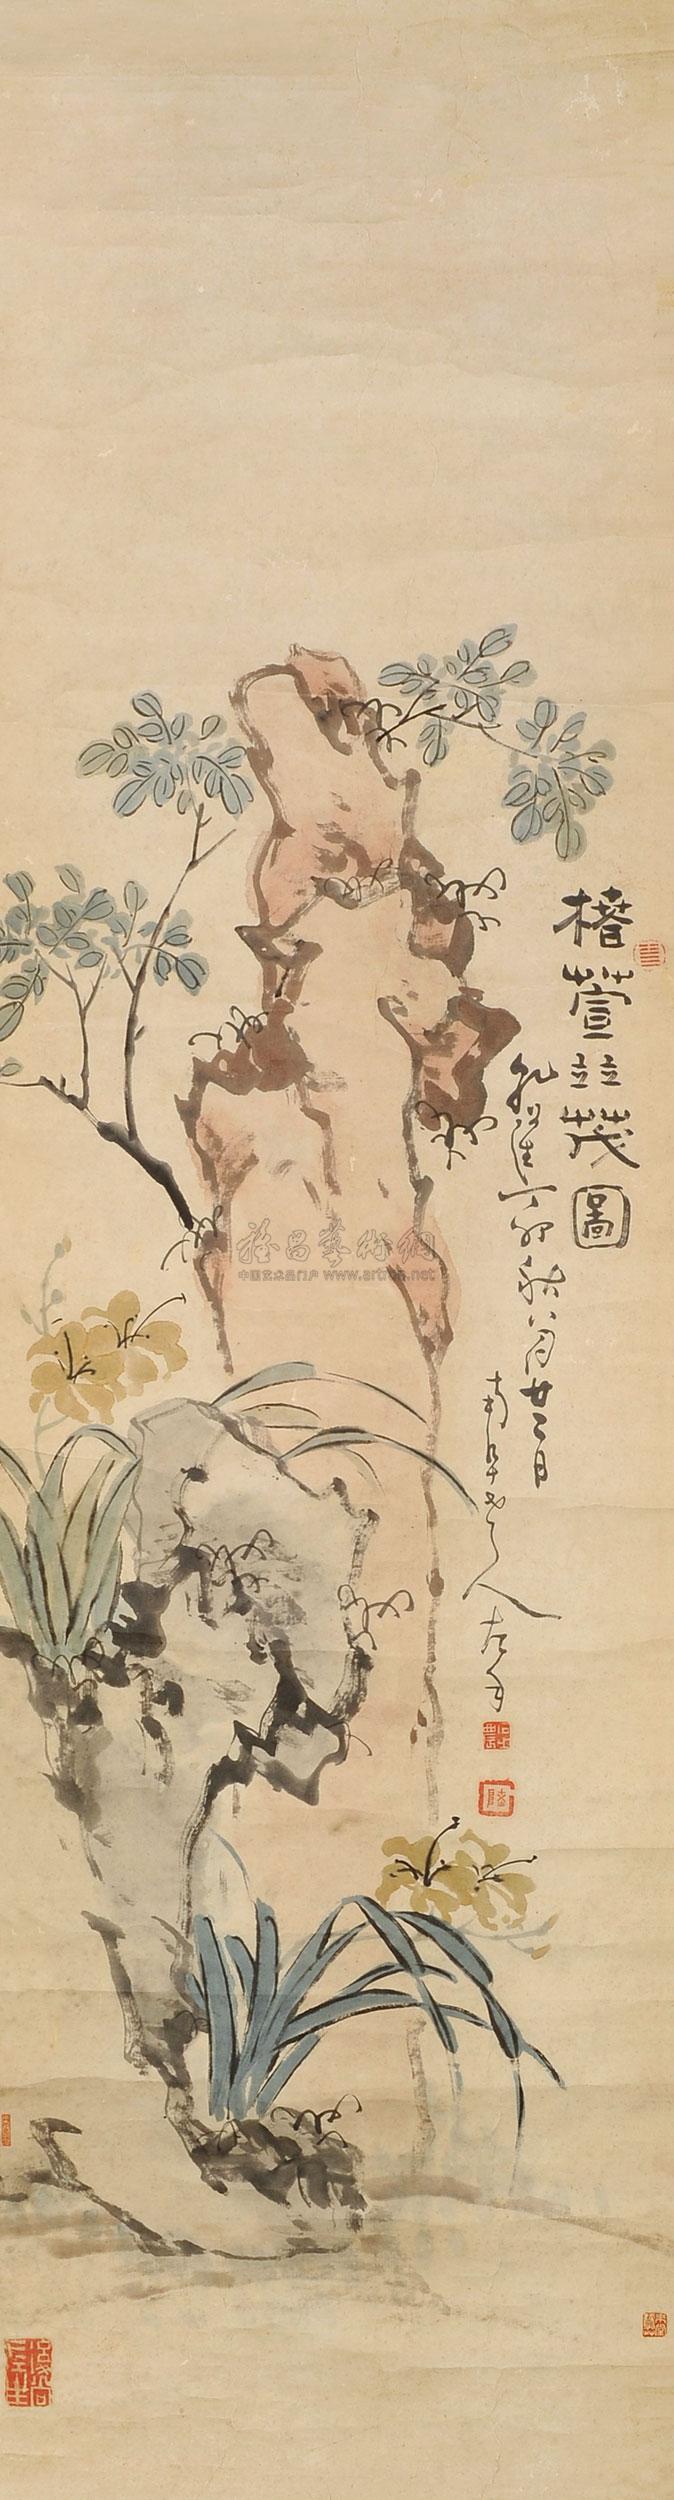 椿萱並茂圖
乾隆丁卯秋八月廿二日
南阜老人左手
雅昌藝術網
中国艺术品门户 www.artron.net